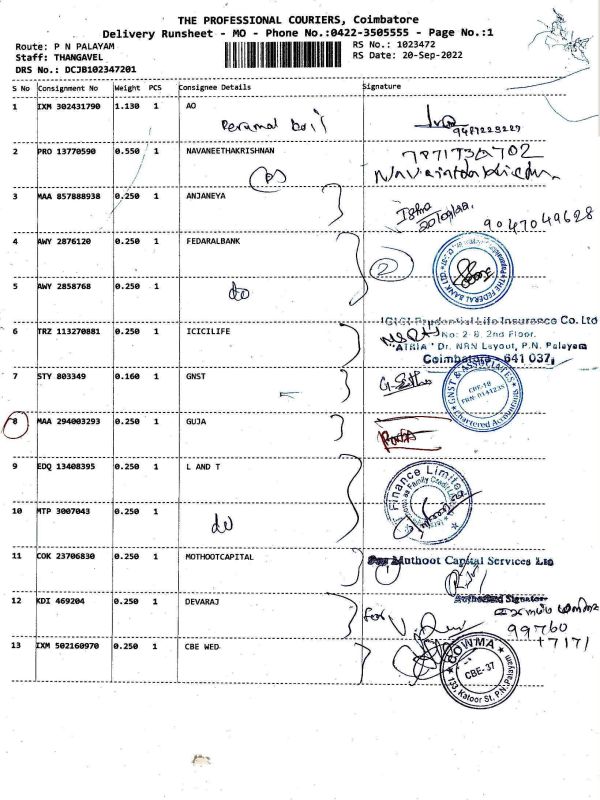 THE PROFESSIONAL COURIERS, Coimbatore
Delivery Runsheet - MO - Phone No.:0422-3505555 - Page No.:1
Route: P N PALAYAM
RS No.: 1023472
Staff: THANGAVEL
RS Date: 20-Sep-2022
DRS No.: DCJB102347201
S No Consignment No Weight PCS Consignee Details Signature
1 IXM 302431790 1.130 1 AO
9487223227
2 PRO 13770590 0.550 1 NAVANEETHAKRISHNAN
3 MAA 857888938 0.250 1 ANJANEYA
9047049628
4 AWY 2876120 0.250 1 FEDARALBANK
2
THE FEDERAL BANK LTD
5 AWY 2858768 0.250 1
do
6 TRZ 113270881 0.250 1 ICICILIFE
ICICI Prudential Life Insurance Co. Ltd
No: 2-B, 2nd Floor,
"ATRIA" Dr. NRN Layout, P.N. Palayam
Coimbatore - 641 037.
7 STY 803349 0.160 1 GNST
GNST & ASSOCIATES
CBE-18
Chartered Accountants
8 MAA 294003293 0.250 1 GUJA
9 EDQ 13408395 0.250 1 L AND T
Finance Limited
10 MTP 3007043 0.250 1
do
11 COK 23706830 0.250 1 MOTHOOTCAPITAL
For Muthoot Capital Services Ltd
Authorised Signatory
12 KDI 469204 0.250 1 DEVARAJ
for
99760
77171
13 IXM 502160970 0.250 1 CBE WED
COWMA
CBE-37
133, Kattoor St, P.N.Palayam